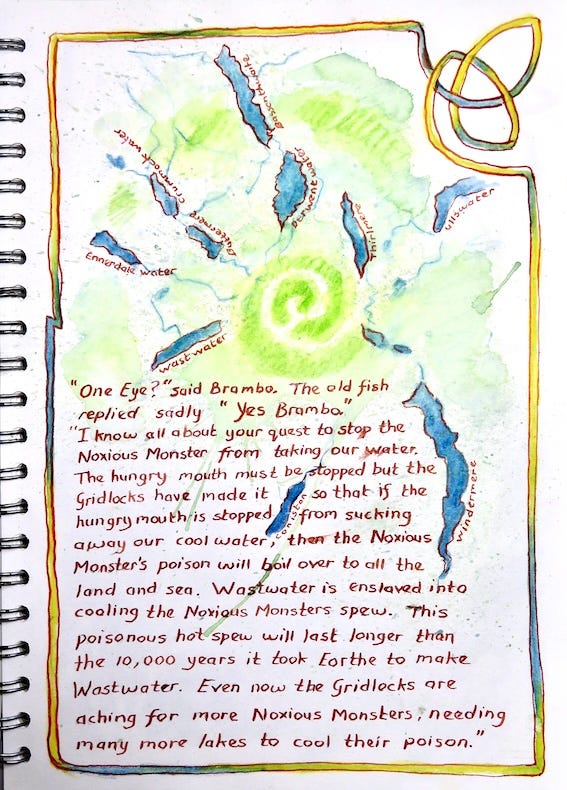 Bassenthwaite
Crummock water
Derwent water
Buttermere
Thirlmere
Ullswater
Ennerdale water
Wastwater
"One Eye?" said Brambo. The old fish
replied sadly "Yes Brambo."
"I know all about your quest to stop the
Noxious Monster from taking our water.
The hungry mouth must be stopped but the
Gridlocks have made it so that if the
hungry mouth is stopped from sucking
away our cool water, then the Noxious
Monster's poison will boil over to all the
land and sea. Wastwater is enslaved into
cooling the Noxious Monsters spew. This
poisonous hot spew will last longer than
the 10,000 years it took Earthe to make
Wastwater. Even now the Gridlocks are
aching for more Noxious Monsters, needing
many more lakes to cool their poison."
Coniston
Windermere